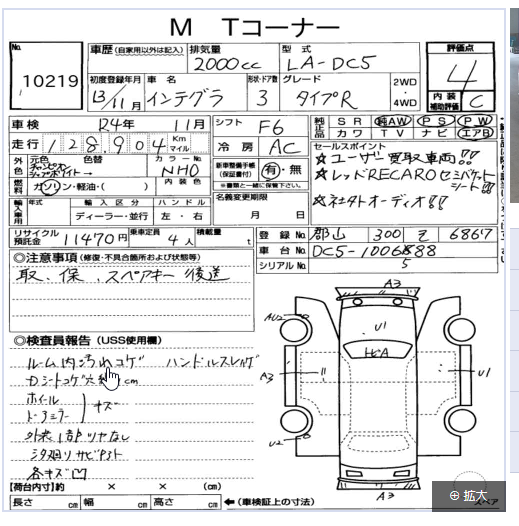 M Tコーナー
No. 10219
車歴 (自家用以外は記入) 排気量 2000cc 型式 LA-DC5
評価点 4
初度登録年月 13/11月 車名 インテグラ 形状・ドア数 3 グレード タイプR 2WD・4WD
内装補助評価 C
車検 R4年 11月 シフト F6 純正品 SR 純AW PS PW
カワ TV ナビ エアB
走行 128,904 Km マイル 冷房 AC
セールスポイント
☆ユーザー買取車両!!
☆レッドRECAROセミバケットシート!!
☆社外オーディオ!!
外色 元色 チャンピオンシップホワイト→ 色替 カラーNo. NH0
新車整備手帳(保証書付) 有・無
※書類と一緒に保管下さい。
燃料 ガソリン・軽油・( ) 内装色
名義変更期限 月 日
輸入車用 年式 輸入区分 ハンドル
ディーラー・並行 左・右
リサイクル預託金 11470円 乗車定員 4人 積載量 t
登録No. 郡山 300 そ 6867
車台No. DC5-1006888
シリアルNo. 5
◎注意事項 (修復・不具合箇所および状態等)
取、保、スペアキー後送
◎検査員報告 (USS使用欄)
ルーム内汚れコゲ ハンドルスレハゲ
Dシートコゲ穴 cm
ホイール
ドアミラー キズ
外装1部ツヤなし
シタ廻りサビ
各キズ凹
A3
AU2
U1
A3
U1
U2
A3
【荷台内寸】約 × × (cm)
長さ cm 幅 cm 高さ cm ←(車検証上の寸法)
スペア
⊕ 拡大